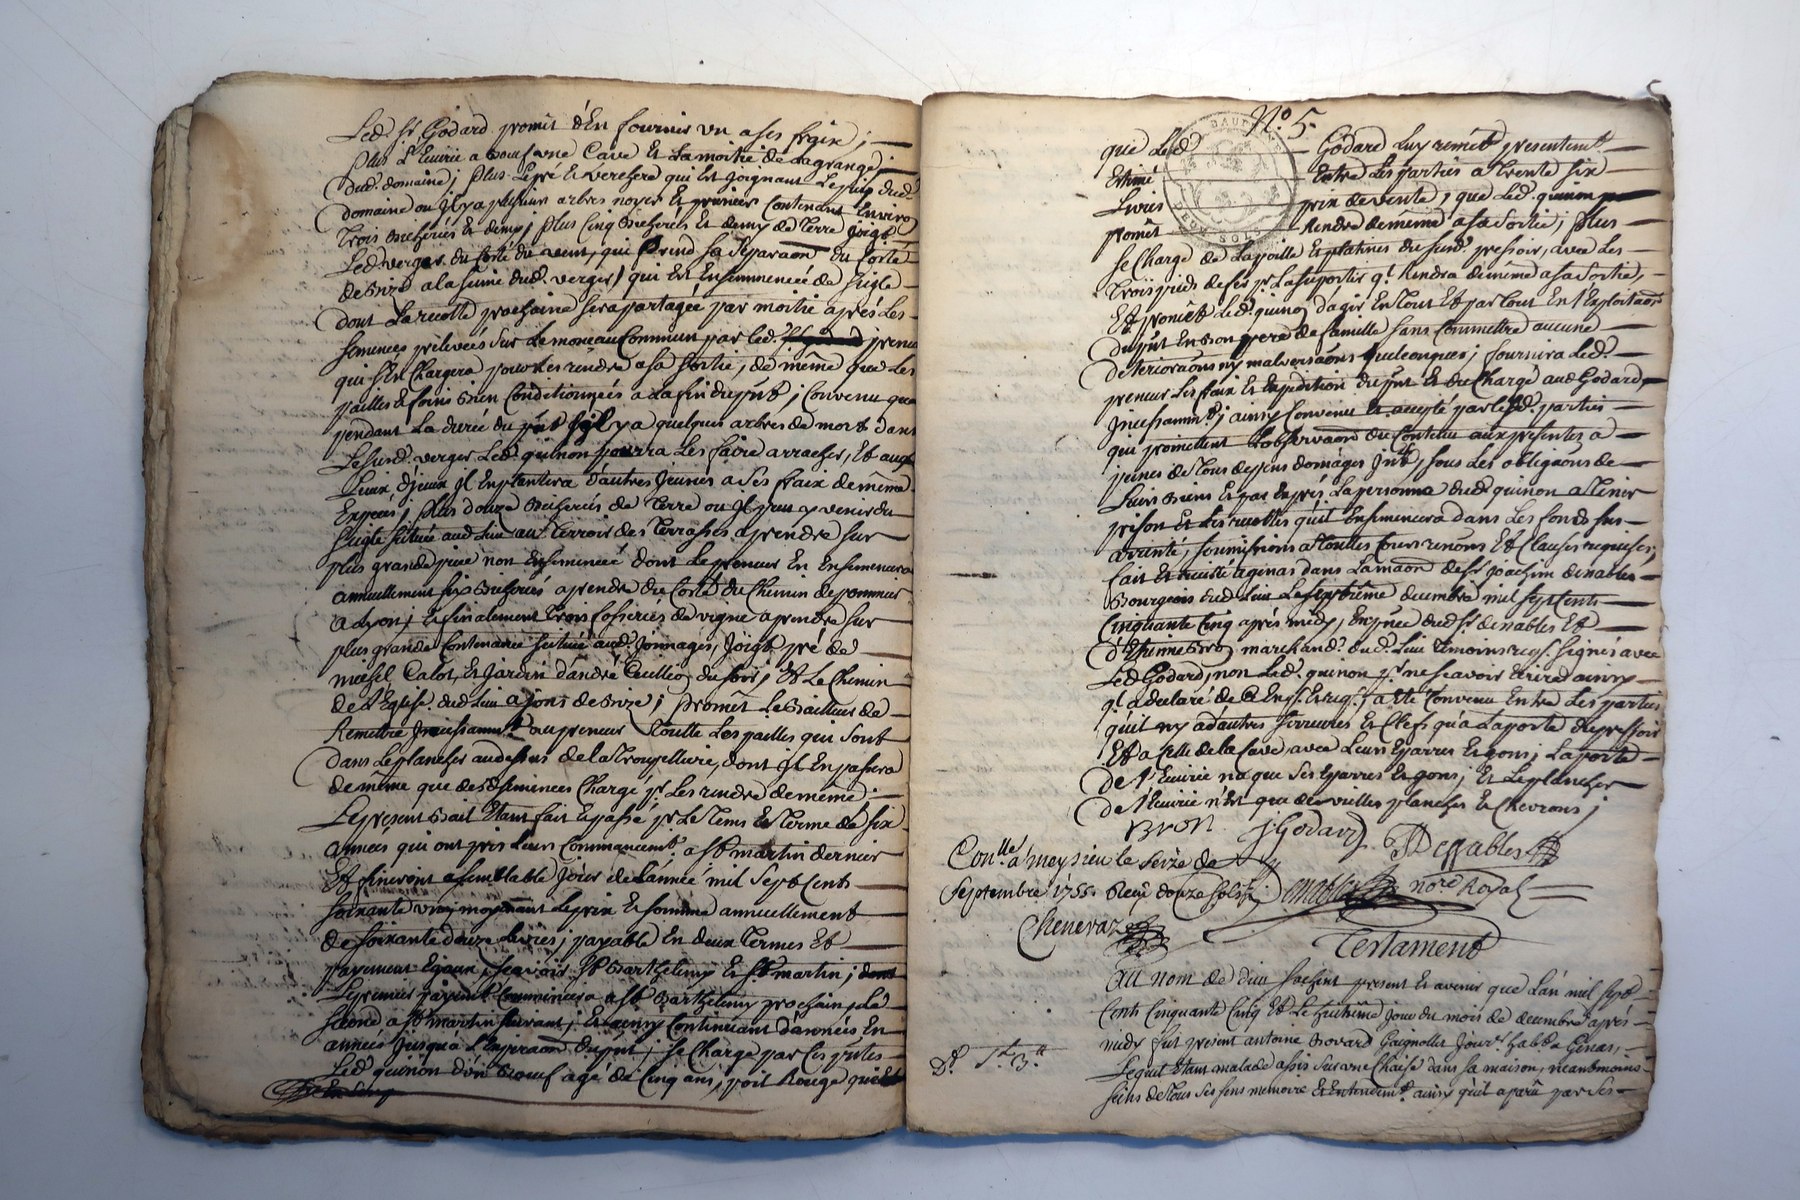 Led. Sr. Godard promit d'En fournir un a ses fraix ;
plus l'Ecurie a boeuf une Cave Et La moitié de La grange
dud. domaine ; plus Le pré Et verchere qui Est joignant Le puis dud.
domaine ou il y a plusieurs arbres noyers Et pruniers Contenant Enviro
Trois bicherées Et demy ; plus Cinq bicherées Et demy de Terre joigt
Led. verger du Coté du vent, qui prend sa separaon du Coté
de bize a la fin dud. verger, qui Est Ensemmencée de seigle
dont La recolte prochaine sera partagée par moitié aprés Les
semences prélevées sur Le monceau Commun par led. preneu
qui s'En Chargera pour les rendre a sa sortie ; de même que Les
pailles Et foins bien Conditionnées a La fin du pnt ; Convenu que
pendant La durée du pnt s'il y a quelques arbres de mort dans
Le susd. verger Led. quinon pourra Les faire arracher, Et au
Lieux d'jceux il En plantera d'autres jeunes a ses fraix de même
Espece ; plus douze bicherées de Terre ou il peut y venir du
seigle scituée aud. Lieu au Terroir des Terrasses a prendre sur
plus grande piece non Ensemencée dont Le preneur En Ensemencera
annuellement six bicherées a prendre du Coté du Chemin de pommier
a Lyon ; Et finalement Trois fosserées de vigne a prendre sur
plus grande Contenance scituée aud. Jonnages, joigt pré de
michel Calot, Et jardin d'andré Cuillier du soir ; Et Le Chemin
de L'Eglise dud. Lieu a jons de bize ; promet Le bailleur de
Remettre jncessamt au preneur Toutte Les pailles qui sont
dans Le plancher au dessus de la , dont il En passera
de même que des semences Chargé pr Les rendre de même ;
Le present bail Etant fait Et passé pr Le Tems Et Terme de six
années qui ont pris Leurs Commancemt a St martin dernier
Et finiront a semblable jour de L'année mil sept Cents
soixante un, moyenant Le prix Et somme annuellement
de soixante douze Livres ; payable En deux Termes Et
payement Egaux, sçavoir St Barthelemy Et St martin ; dont
Le premier payemt Commencera a St Barthelemy prochain, Le
second a St martin suivant ; Et ainsy Continuant d'années En
années jusqu'a L'Expiraon du pnt ; se Charge par Ces pntes
Led. quinon d'un Boeuf agé de Cinq ans, poil Rouge
No. 5.
que Led. Godard Luy remêt presentemt
Estimé Entre Les parties a Trente six
Livres prix de vente ; que Led. quinon
promêt Rendre de même a sa sortie ; plus
se Charge de La poille Et platines du susd. pressoir, avec Les
Trois pieds de fer pr La suporter ql Rendra de même a sa sortie,
Et promêt Led. quinon d'agir En Tout Et par Tout En l'Exploitaon
du pnt En bon pere de famille sans Commettre aucune
deterioraons ny malversaons quelconques ; fournira Led.
preneur Les fraix Et Expedition du pnt Et du Chargé aud. Godard
jncessammt ; ainsy Convenu Et accepté par Lesd. parties
qui promettent L'observaon du Contenu aux presentes a
peines de Tous depens domages jnts, sous Les obligaons de
Leurs biens Et par Exprés La personne dud. quinon a Tenir
prison Et Les recoltes qu'il Ensemencera dans Les fonds sus
arrenté, soumissions a Touttes Cours renons Et Clauses requises ;
fait Et recité a genas dans La maon de Sr joachim denables
Bourgeois dud. Lieu Le septième decembre mil sept Cents
Cinquante Cinq aprés midy, En pnce dud. Sr denables Et
d'Etienne Bron marchand. dud. Lieu Temoins req. signés avec
Led. Godard, non Led. quinon pr ne sçavoir Ecrire ainsy
ql a declaré de Enq. Et req. ; a Eté Convenu Entre Les parties
qu'il ny a d'autres serrures Et Clefs qu'a La porte du pressoir
Et a Celle de la Cave, avec Leurs Eparres Et gons ; La porte
de l'Ecurie n'a que ses Eparres Et gons ; Et Le plancher
de l'Ecurie n'Est que de vielles planches Et Chevrons ;
Bron J Godard Denables
Conllé a meysieu le seize de
Septembre 1755. Reçu douze sols
nore Royal
Chenevaz
Testament
Au nom de dieu soit present et avenir que L'an mil sept
Cents Cinquante Cinq Et Le huitième jour du mois de decembre aprés
midy fut present antoine Bovard Gaignollet jour. hab. a Genas,
Lequel Etant malade assis sur une Chaise dans sa maison, neantmoins
sains de Tous ses sens memoire Et Entendemt. ainsy qu'il a parû par ses